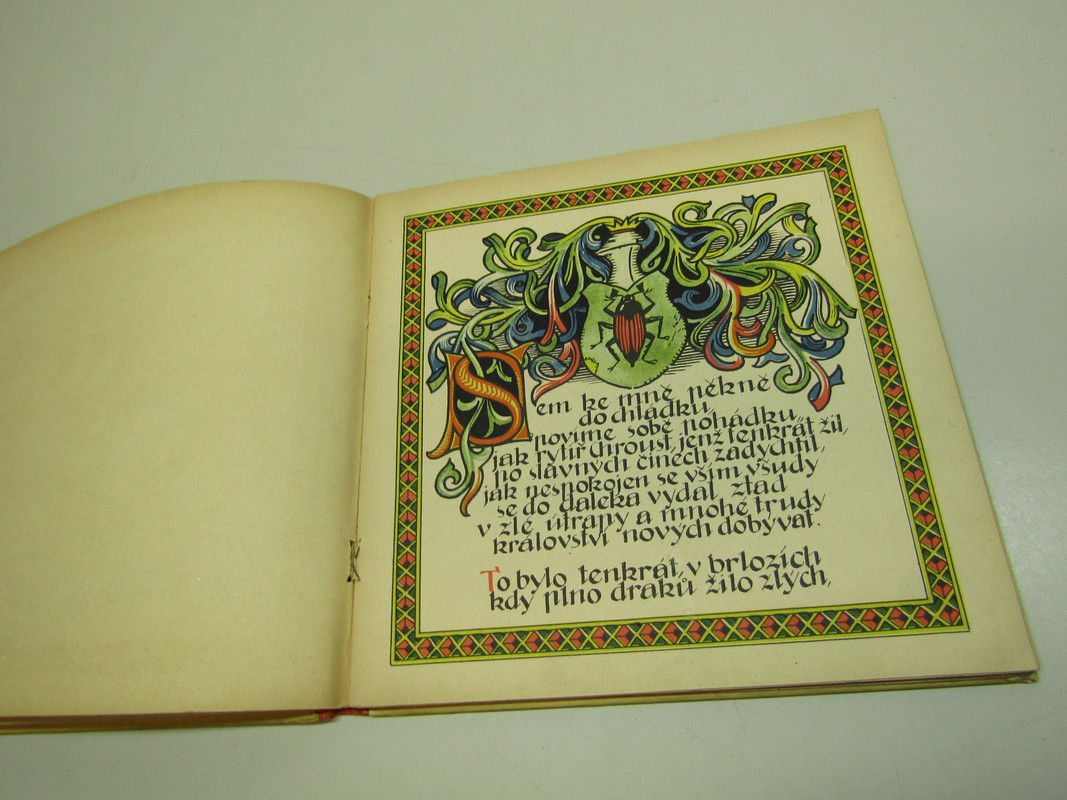 Sem ke mně pěkně
do chládku,
povíme sobě pohádku,
jak rytíř Chroust jenž tenkrát žil,
po slavných činech zadychtil,
jak nespokojen se vším všudy
se do daleka vydal ztad
v zlé útrapy a mnohé trudy
království nových dobývat.
To bylo tenkrát, v brlozích
kdy plno draků žilo zlých,